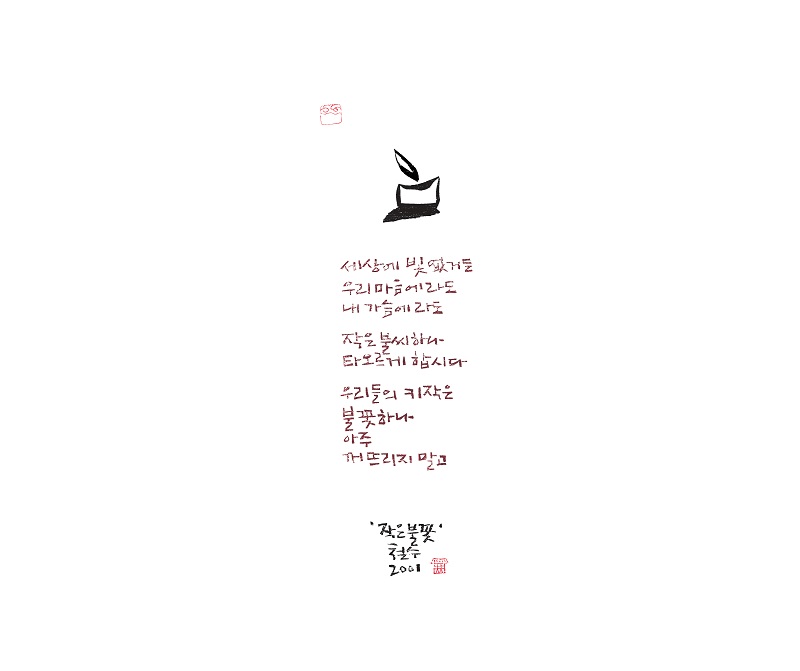 세상에 빛 없거든
우리 마음에라도
내 가슴에라도
작은 불씨 하나
타오르게 합시다
우리들의 키작은
불꽃 하나
아주
꺼뜨리지 말고
'작은 불꽃'
철수
2001